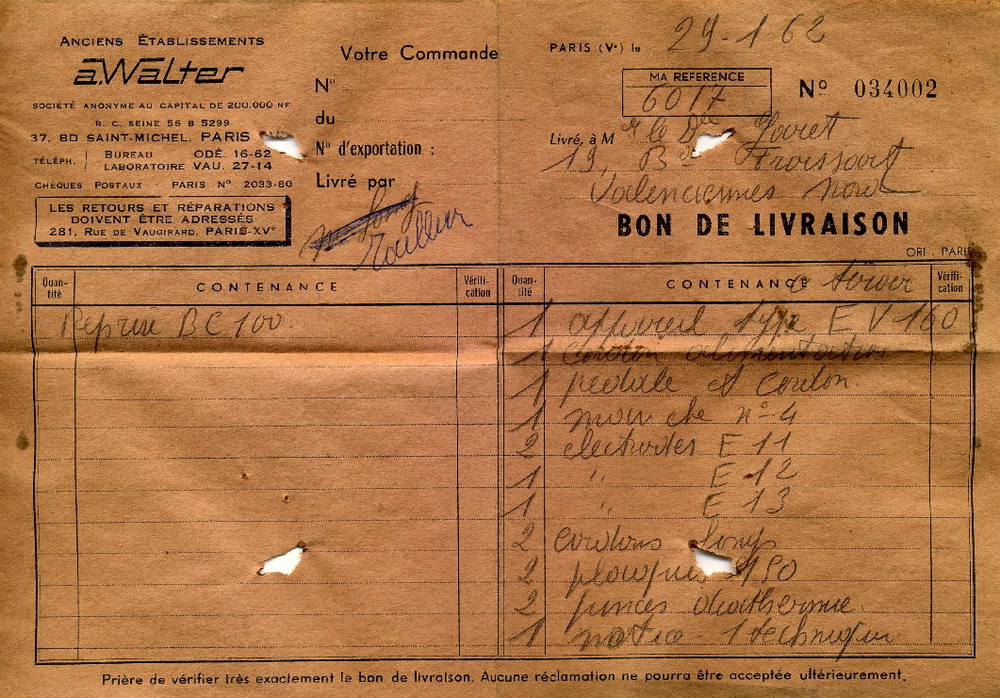 ANCIENS ÉTABLISSEMENTS
a.Walter
SOCIÉTÉ ANONYME AU CAPITAL DE 200.000 NF
R. C. SEINE 56 B 5299
37. BD SAINT-MICHEL, PARIS
TÉLÉPH. BUREAU ODÉ. 16-62
LABORATOIRE VAU. 27-14
CHÈQUES POSTAUX - PARIS N° 2033-80
LES RETOURS ET RÉPARATIONS
DOIVENT ÊTRE ADRESSÉS
281, RUE DE VAUGIRARD, PARIS-XVe
Votre Commande
N°
du
N° d'exportation :
Livré par
PARIS (Ve) le 29-1 62
MA REFERENCE
6017
N° 034002
Livré, à M r le Dr
19, Bd Froissart
Valenciennes Nord
BON DE LIVRAISON
ORI. PARIS
Quantité CONTENANCE Vérification
Reprise BC 100
Quantité CONTENANCE Vérification
1 appareil type E V 160
1 cordon alimentation
1 pedale et cordon
1 manche n° 4
2 electrodes E 11
1 " E 12
1 " E 13
2 cordons longs
2 plaques 190
2 pinces diathermie
1 notice - 1 technique
Prière de vérifier très exactement le bon de livraison. Aucune réclamation ne pourra être acceptée ultérieurement.